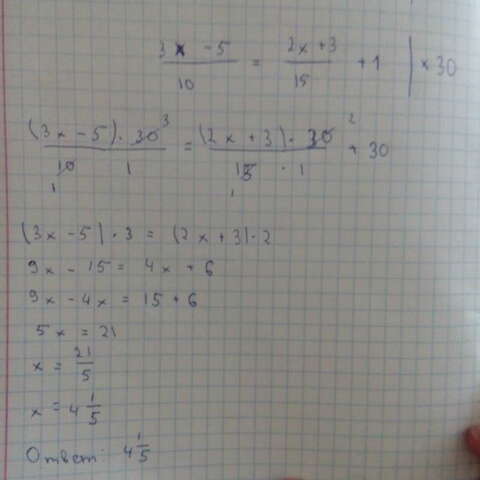 3x - 5 / 10 = 2x + 3 / 15 + 1 | × 30
(3x - 5) · 30 3 / 10 1 · 1 = (2x + 3) · 30 2 / 15 1 · 1 + 30
(3x - 5) · 3 = (2x + 3) · 2
9x - 15 = 4x + 6
9x - 4x = 15 + 6
5x = 21
x = 21/5
x = 4 1/5
Ответ: 4 1/5